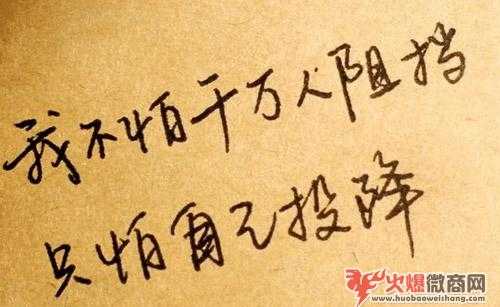 我不怕千万人阻挡
只怕自己投降
火爆微商网
www.huobaoweishang.com